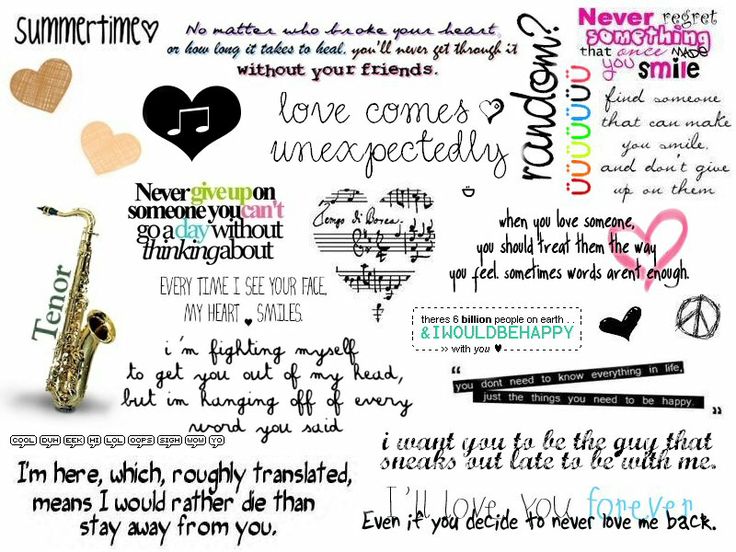 summertime
No matter who broke your heart,
or how long it takes to heal. you'll never get through it
without your friends.
random?
üüüüüüü
Never regret
something
that once made
you smile
find someone
that can make
you smile.
and don't give
up on them
love comes
unexpectedly
Never give up on
someone you can't
go a day without
thinking about
Tempo di Borea.
when you love someone,
you should treat them the way
you feel. sometimes words arent enough.
Tenor
EVERY TIME I SEE YOUR FACE,
MY HEART SMILES.
theres 6 billion people on earth . . .
& I WOULD BE HAPPY
» with you ♥
i'm fighting myself
to get you out of my head,
but im hanging off of every
word you said
“
you dont need to know everything in life,
just the things you need to be happy.
”
COOL DUH EEK HI LOL OOPS SIGH WOW YO
i want you to be the guy that
sneaks out late to be with me.
I'm here, which, roughly translated,
means I would rather die than
stay away from you.
I'll love you forever
Even if you decide to never love me back.